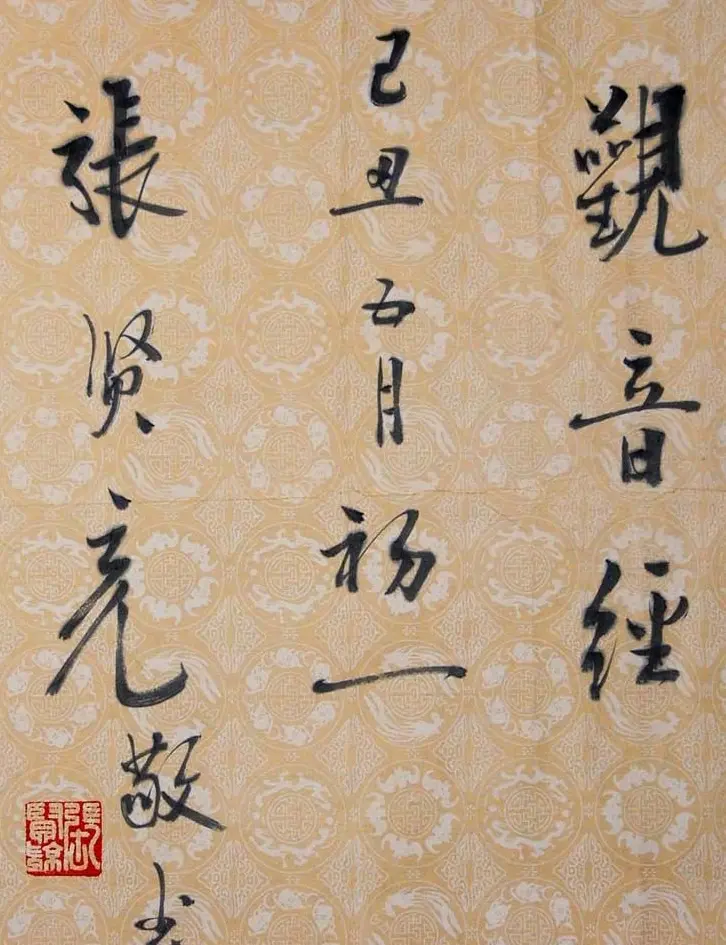 觀音經
己丑五月初一
張贤亮敬书